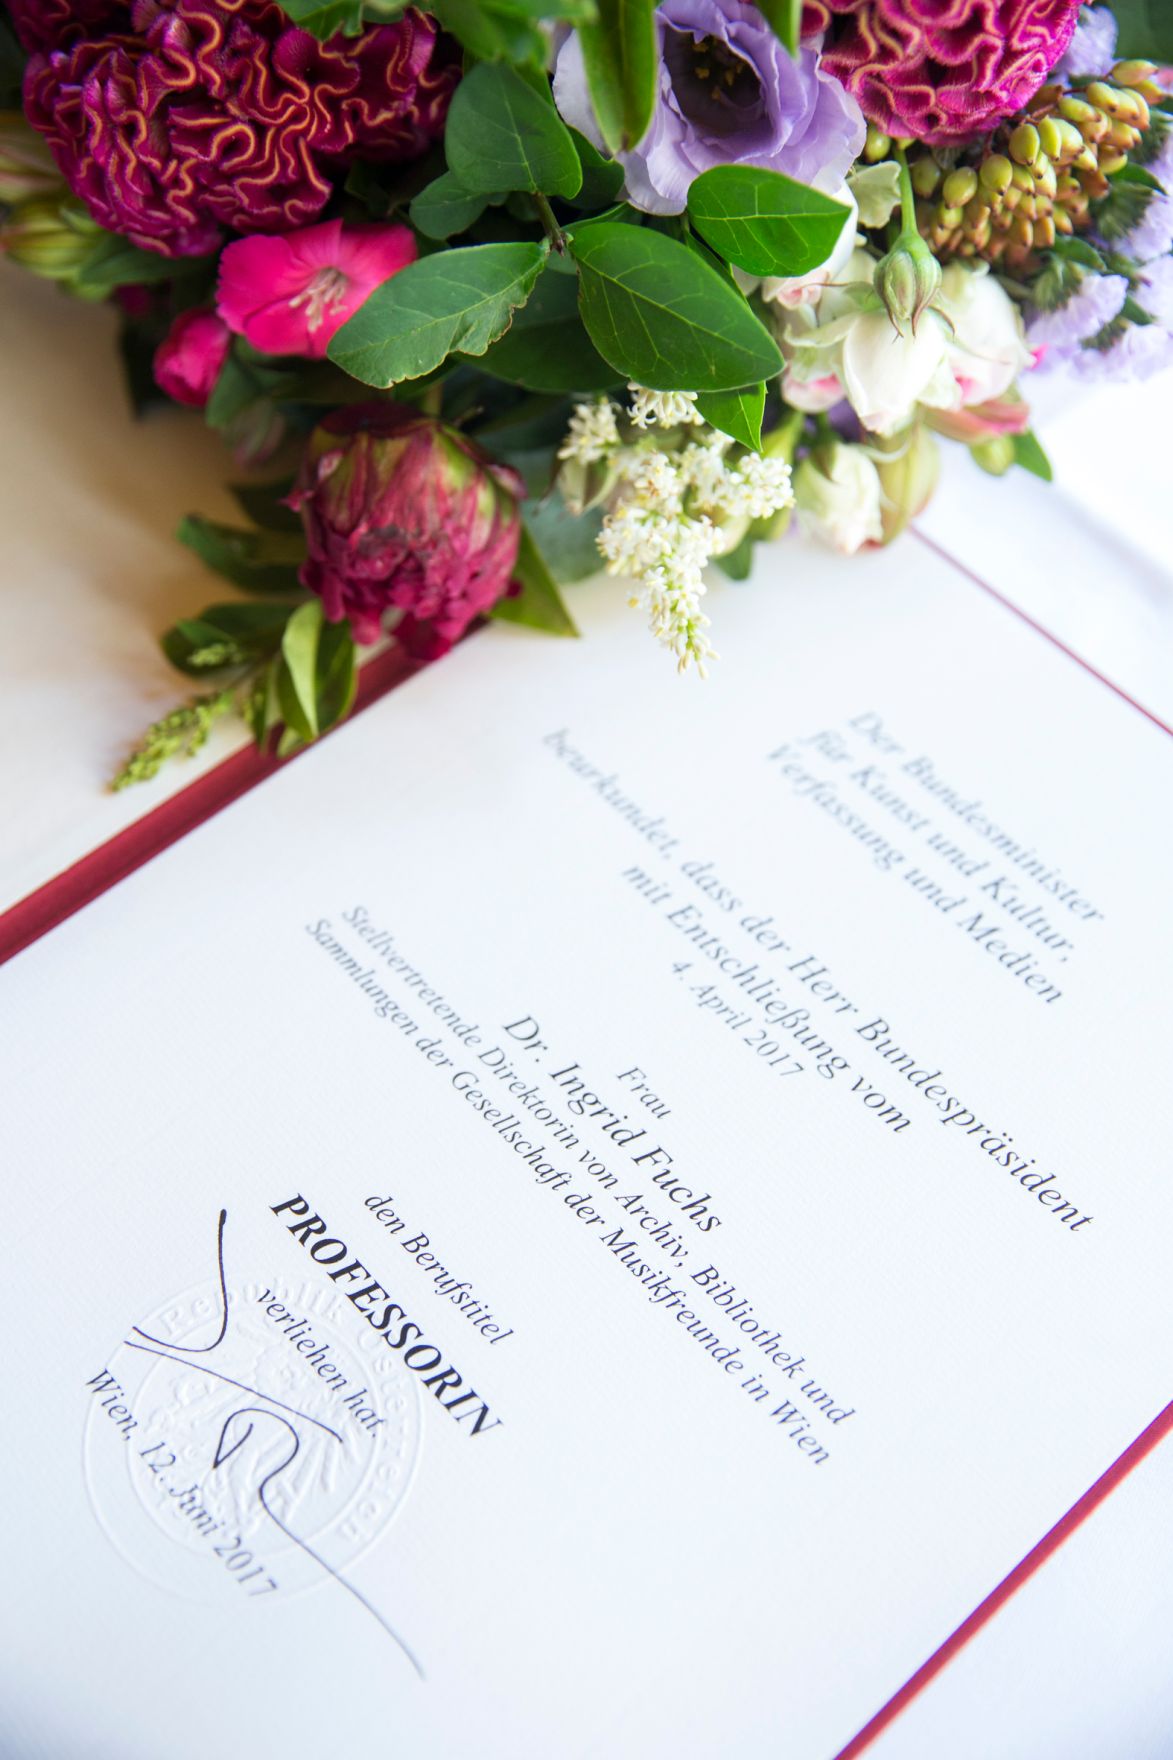 Der Bundesminister
für Kunst und Kultur,
Verfassung und Medien
beurkundet, dass der Herr Bundespräsident
mit Entschließung vom
4. April 2017
Frau
Dr. Ingrid Fuchs
Stellvertretende Direktorin von Archiv, Bibliothek und
Sammlungen der Gesellschaft der Musikfreunde in Wien
den Berufstitel
PROFESSORIN
verliehen hat.
Wien, 12. Juni 2017
Republik Österreich